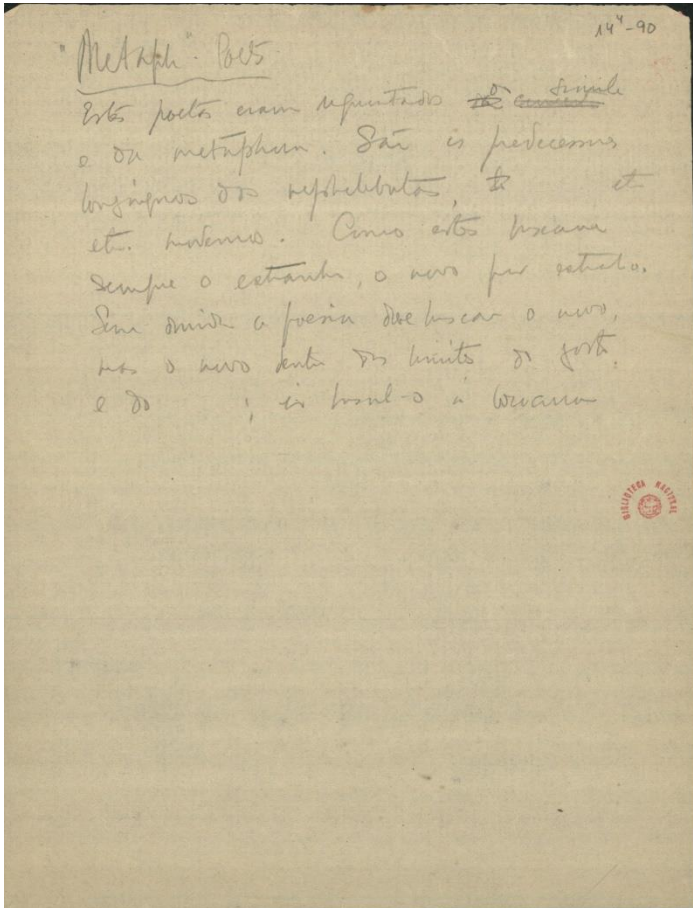 14⁴-90
"Metaph". Poets
Estes poetas eram requintados do simile
e da metaphora. São os predecessores
longinquos dos nephelibatas, etc
etc. modernos. Como estes buscavam
sempre o extranho, o novo por extranho.
Sem duvida a poesia deve buscar o novo,
mas o novo dentro dos limites do gosto,
e do ; ir buscal-o á loucura
BIBLIOTECA NACIONAL